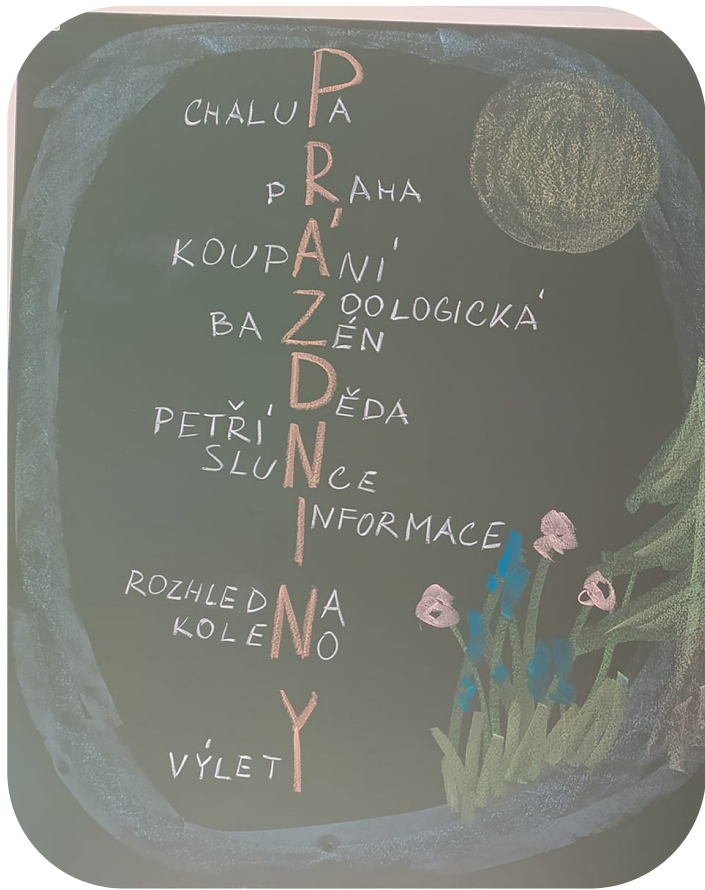 CHALUPA
PRAHA
KOUPÁNÍ
ZOOLOGICKÁ
BAZÉN
DĚDA
PETŘÍN
SLUNCE
INFORMACE
ROZHLEDNA
KOLENO
VÝLETY